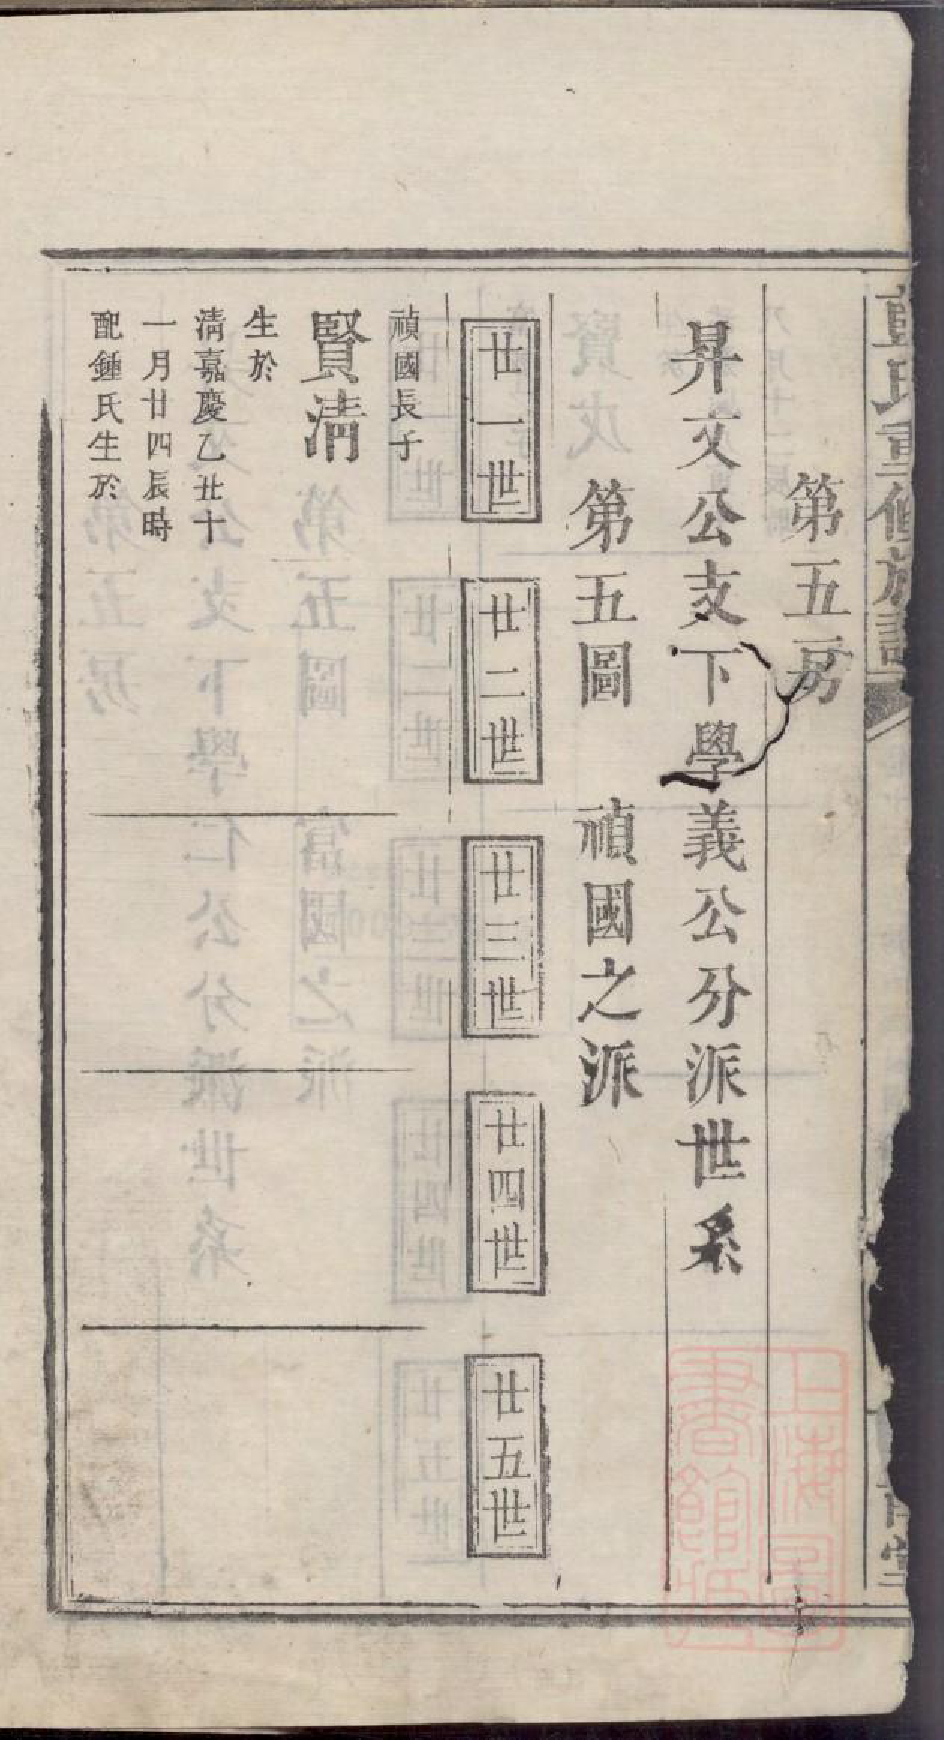 氏重修族譜
第五房
昇文公支下學義公分派世系
第五圖　禎國之派
廿一世
廿二世
廿三世
廿四世
廿五世
禎國長子
賢淸
生於
淸嘉慶乙丑十
一月廿四辰時
配鍾氏生於
上海圖書館藏